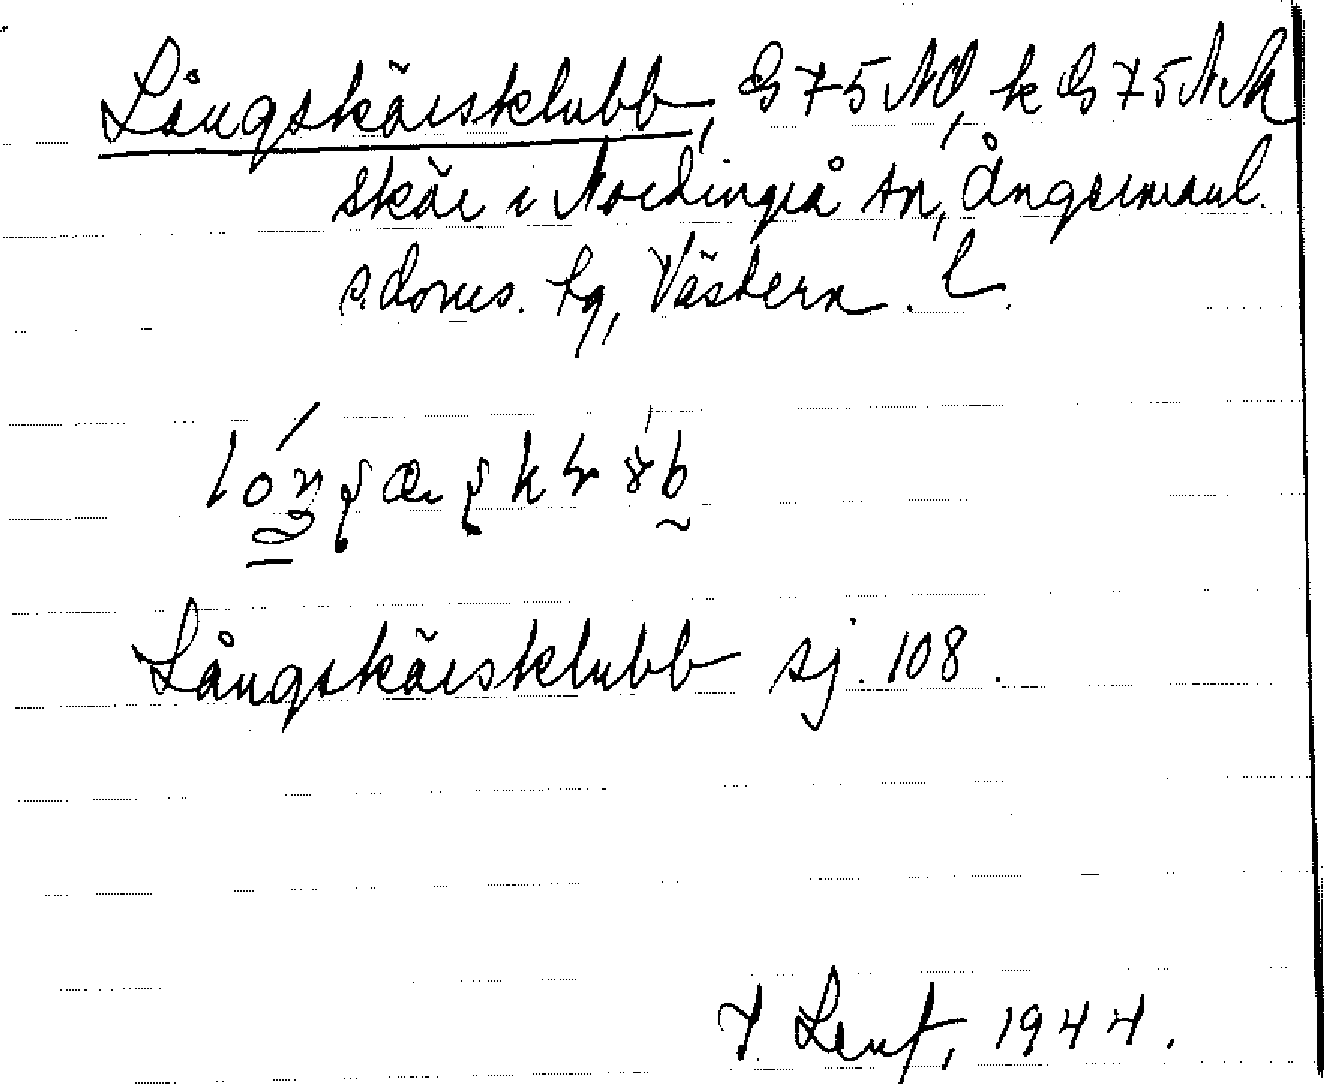 Långskärsklubb, G 75 NO, k G 75 NM
skär i Nordingrå sn, Ångermanl.
s. doms. hg, Västern. L.
Långskärsklubb sj. 108.
Y. Lenf, 1944.